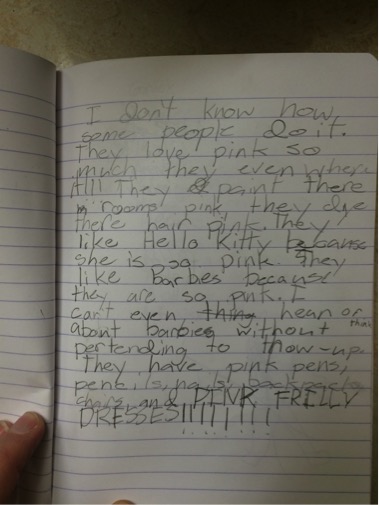 I don't know how
some people do it.
They love pink so
much they even where
it!!! They paint there
rooms pink, they dye
there hair pink. They
like Hello Kitty because
she is so pink. They
like barbies because
they are so pink. I
can't even hear or
about barbies without
pertending to thow-up.
They have pink pens,
penkils, nails, backpacks
chairs, and PINK FRILLY
DRESSES!!!!!!!!!